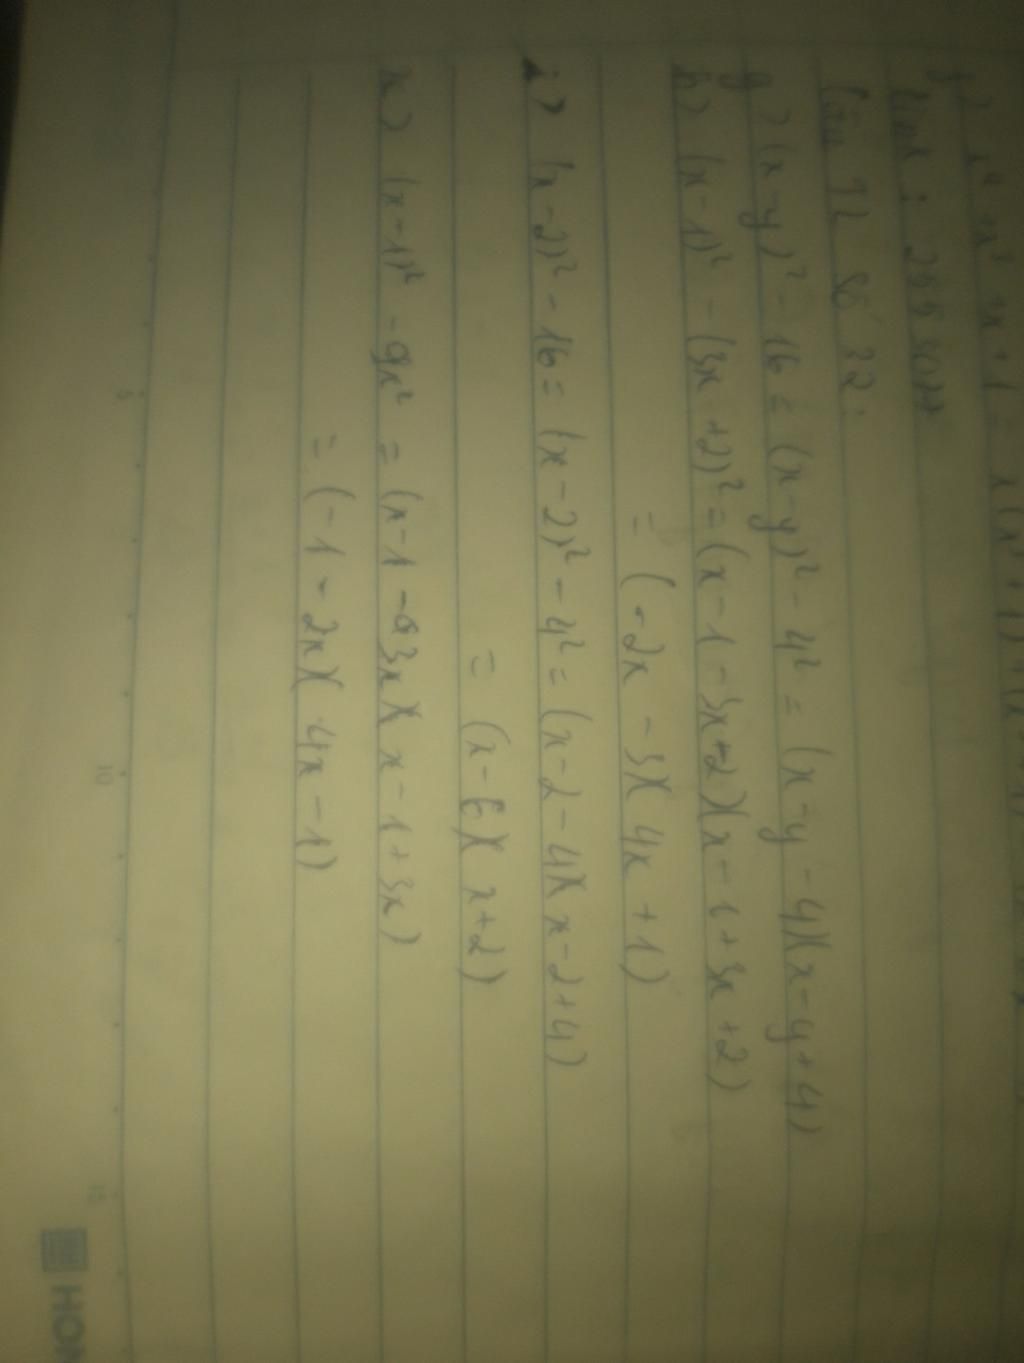 f) x⁴ + x³ + x + 1 = x(x³ + 1) + (x + 1)
Câu 72 số 32:
g) (x - y)² - 16 = (x - y)² - 4² = (x - y - 4)(x - y + 4)
h) (x - 1)² - (3x + 2)² = (x - 1 - 3x + 2)(x - 1 + 3x + 2)
= (-2x - 3)(4x + 1)
i) (x - 2)² - 16 = (x - 2)² - 4² = (x - 2 - 4)(x - 2 + 4)
= (x - 6)(x + 2)
k) (x - 1)² - 9x² = (x - 1 - 3x)(x - 1 + 3x)
= (-1 - 2x)(4x - 1)
5
10
15
HON